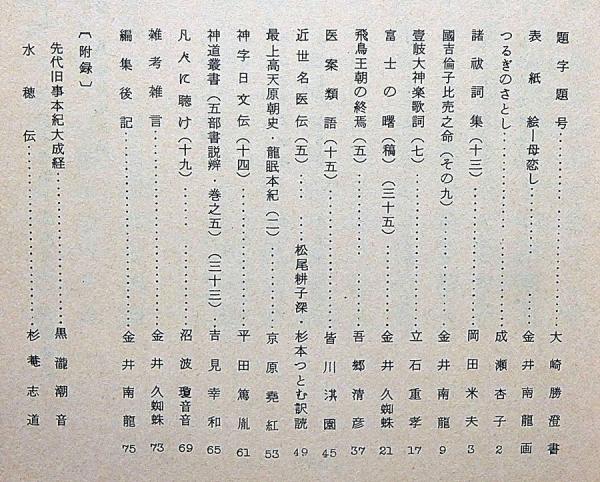 題字題号……………………大崎勝澄書
表紙絵―母恋し……………………金井南龍画
つるぎのさとし……………………成瀬杏子 2
諸祓詞集(十三)……………………岡田米夫 3
國吉倫子比売之命(その九)……………………金井南龍 9
壹岐大神楽歌詞(七)……………………立石重孝 17
富士の曙(稿)(三十五)……………………金井久蜘蛛 21
飛鳥王朝の終焉(五)……………………吾郷清彦 37
医案類語(十五)……………………皆川淇園 45
近世名医伝(五)……松尾耕子深 杉本つとむ訳読 49
最上高天原朝史・龍眠本紀(二)……………………京原堯紅 53
神字日文伝(十四)……………………平田篤胤 61
神道叢書(五部書説辨・巻之五)(三十三)……吉見幸和 65
凡人に聴け(十九)……………………沼波瓊音音 69
雑考雑言……………………金井久蜘蛛 73
編集後記……………………金井南龍 75
〔附録〕
先代旧事本紀大成経……………………黒瀧潮音
水穂伝……………………杉菴志道